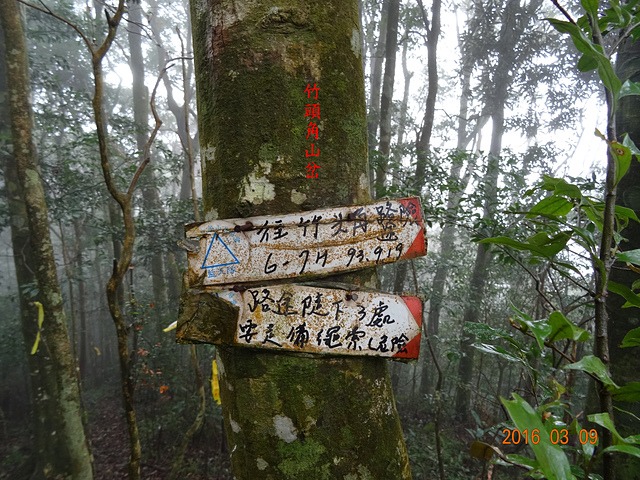 竹頭角山岔
往竹头角 路險
6-7H 93.9.19
路途陡下3處
要足備繩索
2016 03 09